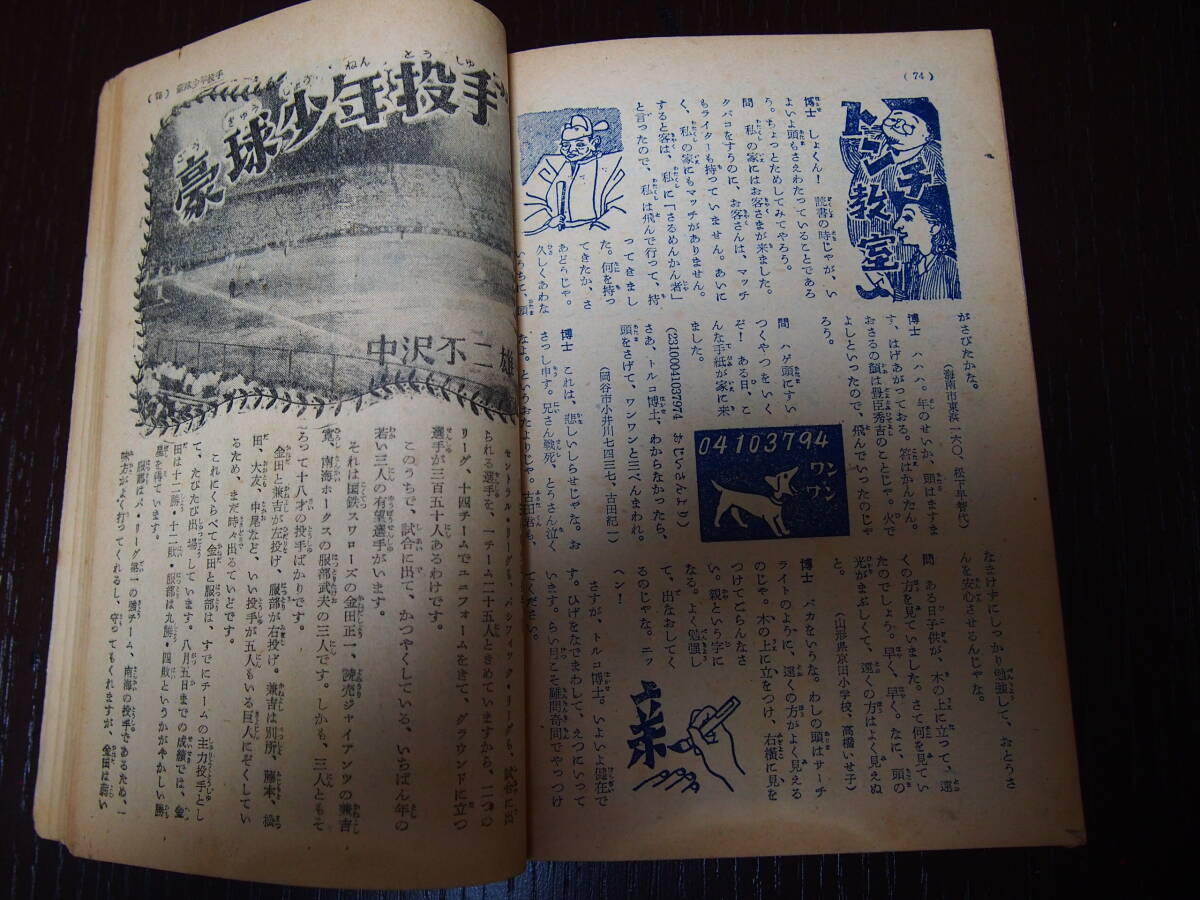 (74)
トンチ教室
博士 しょくん! 読書の時じゃが、い
よいよ頭もさえわたっていることであろ
う。ちょっとためしてみてやろう。
問 私の家にはお客さまが来ました。
タバコをすうのに、お客さんは、マッチ
もライターも持っていません。あいに
く、私の家にもマッチがありません。
すると客は、私に「さるめんかん者」
と言ったので、私は飛んで行って、持
ってきまし
た。何を持っ
てきたか、さ
あどうじゃ。
久しくあわな
いうちに、頭
がさびたかな。
(海南市東浜一六〇、松下早智代)
博士 ハハハ。年のせいか、頭はますま
す、はげあがっておる。答はかんたん。
おさるの顔は豊臣秀吉のことじゃ。火で
よしといったので、飛んでいったのじゃ
ろう。
問 ハゲ頭にすい
つくやつをいく
ぞ! ある日、こ
んな手紙が家に来
ました。
(23100041037974 おじいさんより)
さあ、トルコ博士、わからなかったら、
頭をさげて、ワンワンと三べんまわれ。
(岡谷市小井川七四三七、古田紀一)
04103794
ワンワン
博士 これは、悲しいしらせじゃな。お
さっし申す。兄さん戦死、とうさん泣く
なよ。というおたよりじゃ。古田君も、
なまけずにしっかり勉強して、おとうさ
んを安心させるんじゃな。
問 ある日子供が、木の上に立って、遠
くの方を見ていました。さて何を見てい
たのでしょう。早く、早く。なに、頭の
光がまぶしくて、遠くの方はよく見えぬ
と。
(山形県京田小学校、高橋いせ子)
博士 バカをいうな。わしの頭はサーチ
ライトのように、遠くの方がよく見える
のじゃ。木の上に立をつけ、右横に見を
つけてごらんなさ
い。親という字に
なる。よく勉強し
て、出なおしてく
るのじゃな。エッ
ヘン!
さすが、トルコ博士。いよいよ健在で
す。ひげをなでまわして、えつにいって
います。らい月こそ難問奇問でやっつけ
てください。
亲
(75) 豪球少年投手
豪球少年投手
中沢不二雄
セントラル・リーグも、パシフィック・リーグも、試合に出
られる選手を、一チーム二十五人ときめていますから、二つの
リーグ、十四チームでユニフォームをきて、グラウンドに立つ
選手が三百五十人あるわけです。
このうちで、試合に出て、かつやくしている、いちばん年の
若い三人の有望選手がいます。
それは国鉄スワローズの金田正一、読売ジャイアンツの兼吉
寛、南海ホークスの服部武夫の三人です。しかも、三人ともそ
ろって十八才の投手ばかりです。
金田と兼吉が左投げ、服部が右投げ。兼吉は別所、藤本、松
田、大友、中尾など、いい投手が五人もいる巨人にぞくしてい
るため、まだ時々出るていどです。
これにくらべて金田と服部は、すでにチームの主力投手とし
て、たびたび出場しています。八月五日までの成績では、金
田は十二勝・十二敗・服部は九勝・四敗というかがやかしい勝
星を得ています。
服部はパ・リーグ第一の強チーム、南海の投手であるため、
味方がよく打ってくれるし、守ってもくれますが、金田は弱い